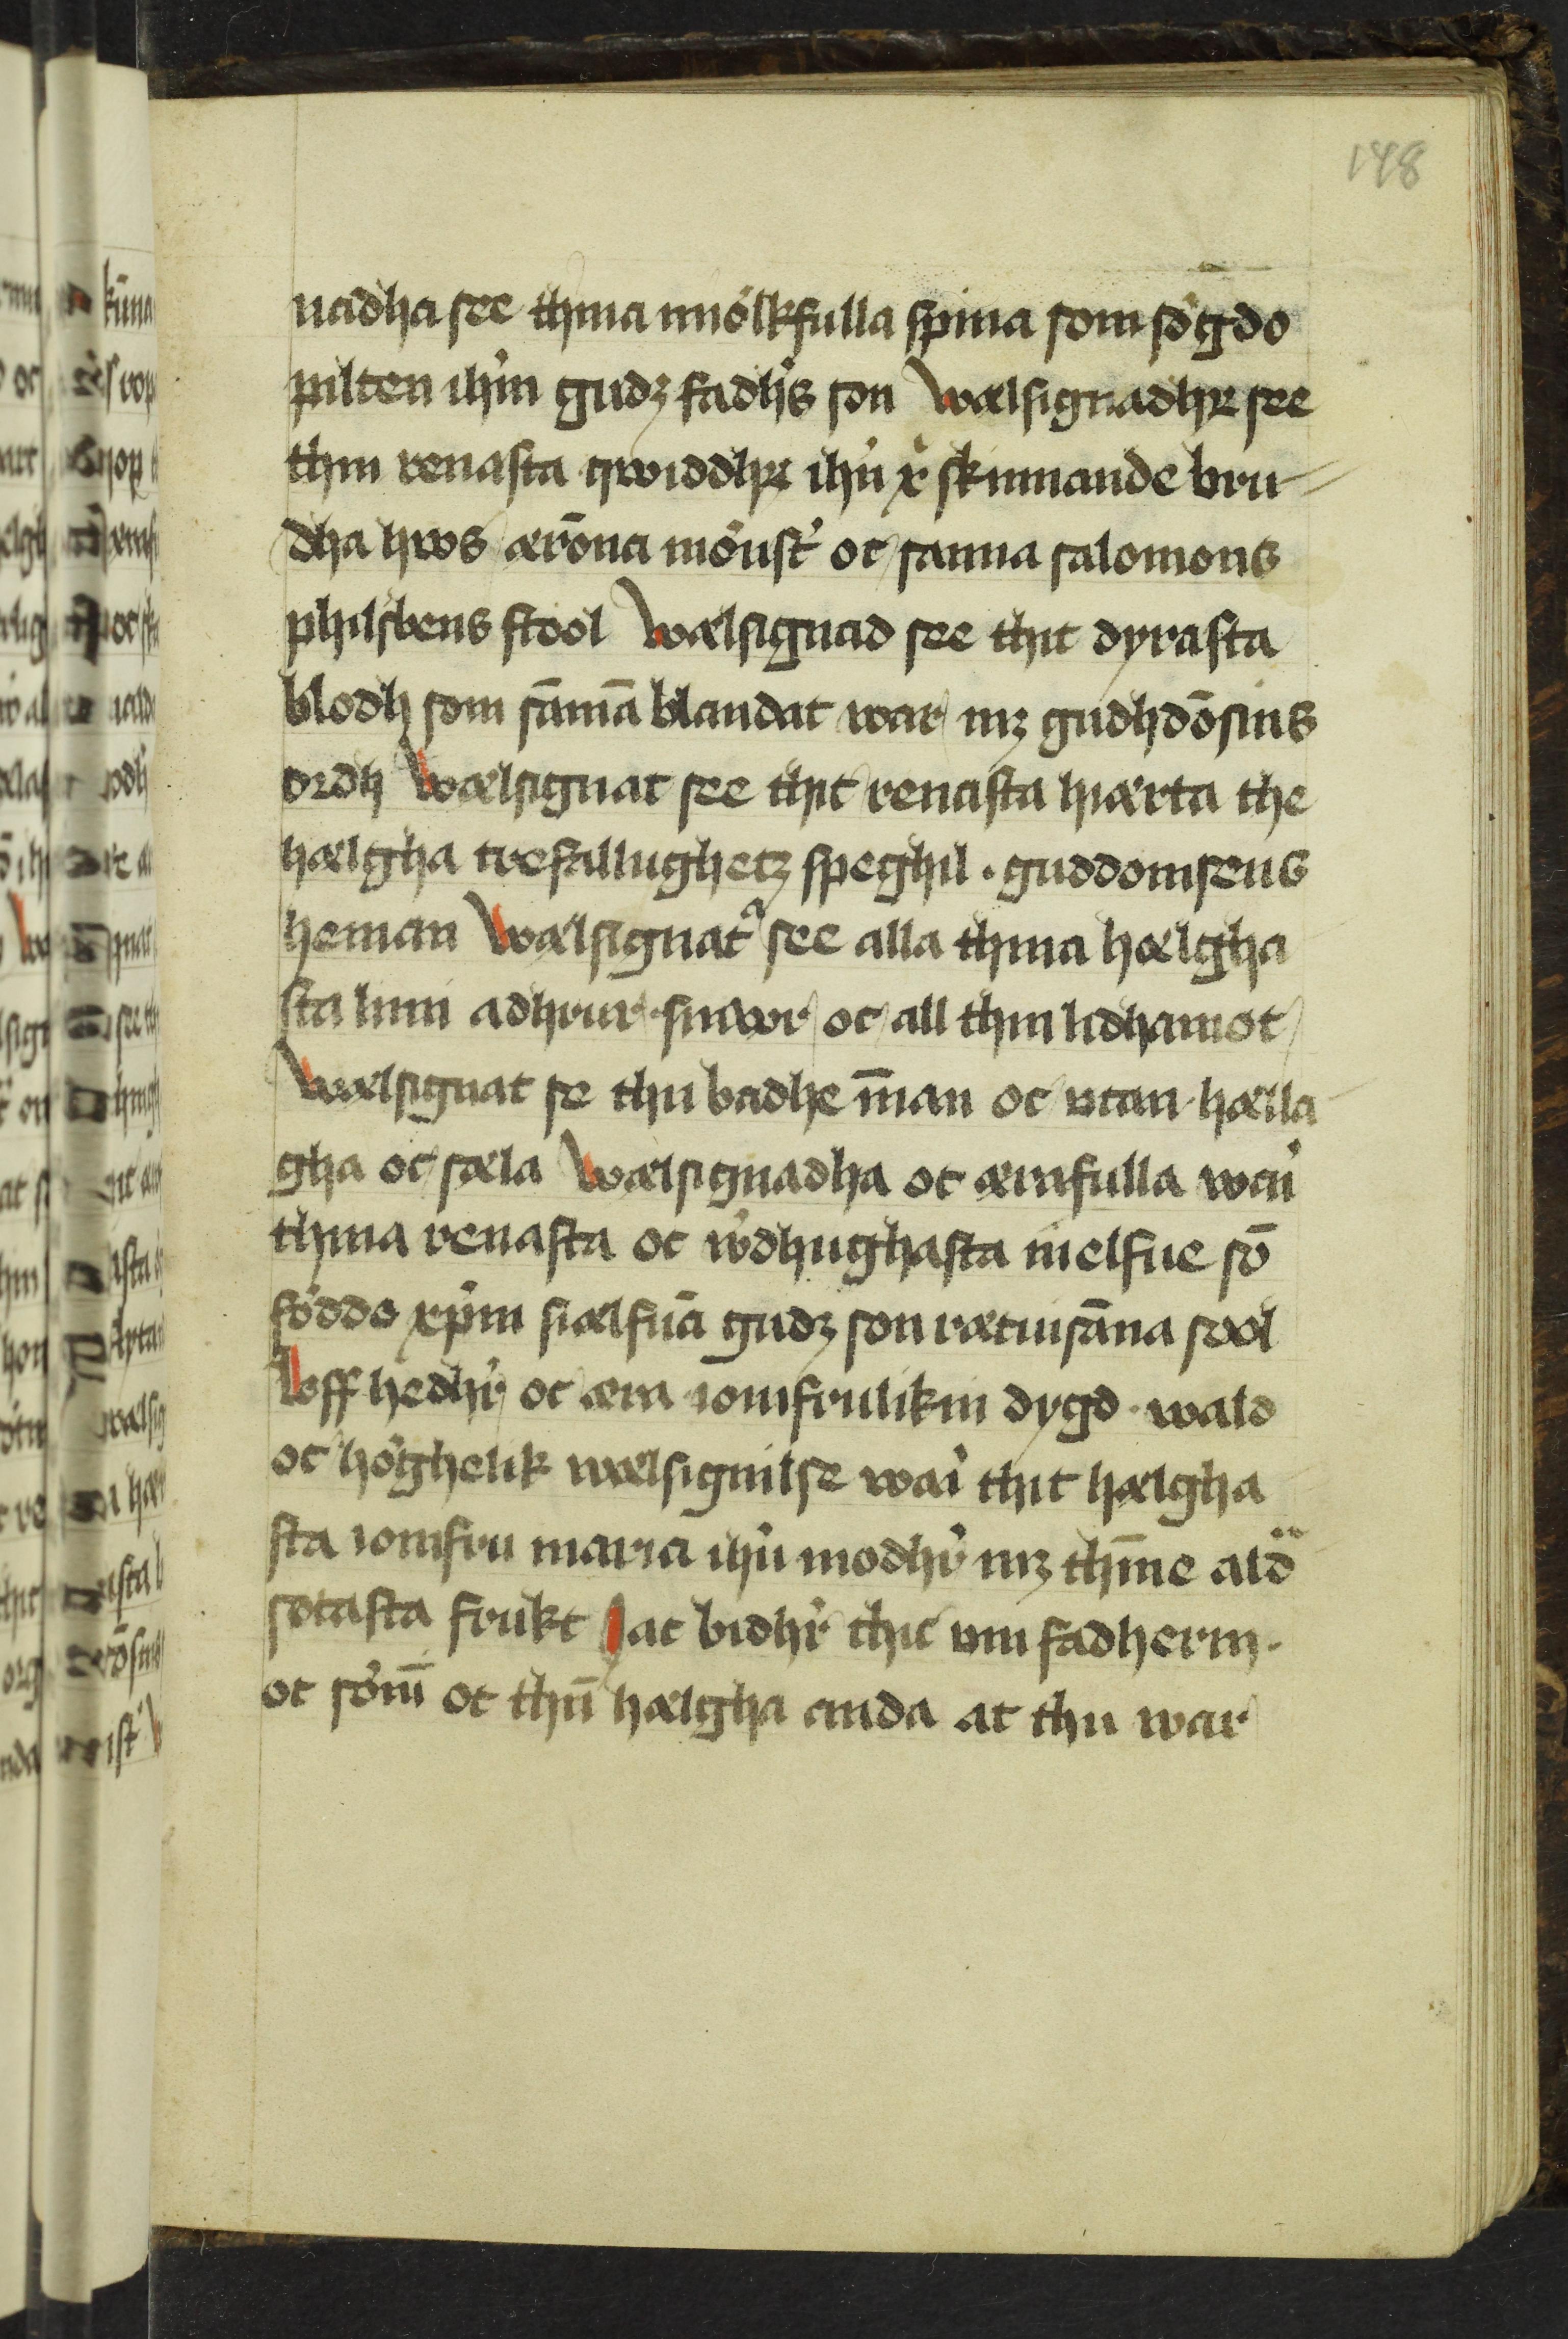 148
nadha see thina miölkfulla spina som sögdo
pilten ihm gudz fadhs son Wælsignadhr see
thin renasta qwiddhr ihu x skinnande bru-
dha hws ærona mönstr oc sanna salomons
philsbens stool Wælsignad see thit dyrasta
blodh som sāmā blandat war mz gudhdōsins
ordh Wælsignat see thit renasta hiærta the
hælgha trefallughetz speghil . guddomsens
heman Wælsignat see alla thina hælgha
sta limi adhrur . sinwr oc all thin lidhamot
Wælsignat se thu badhe īnan oc vtan hælla
gha oc sæla Wælsignadha oc ærafulla wari
thina renasta oc wrdhughasta mielfue sō
föddo xpm siælfuā gudz son rætuisāna sool
Loff hedhr oc æra iomfrulikin dygd . wald
oc höghelik wælsignilse wari thit hælgha
sta iomfru maria ihu modhr mz thīne ald
sötasta frukt Jac bidhr thic vm fadherin .
oc sönī oc thn̄ hælgha anda at thu war